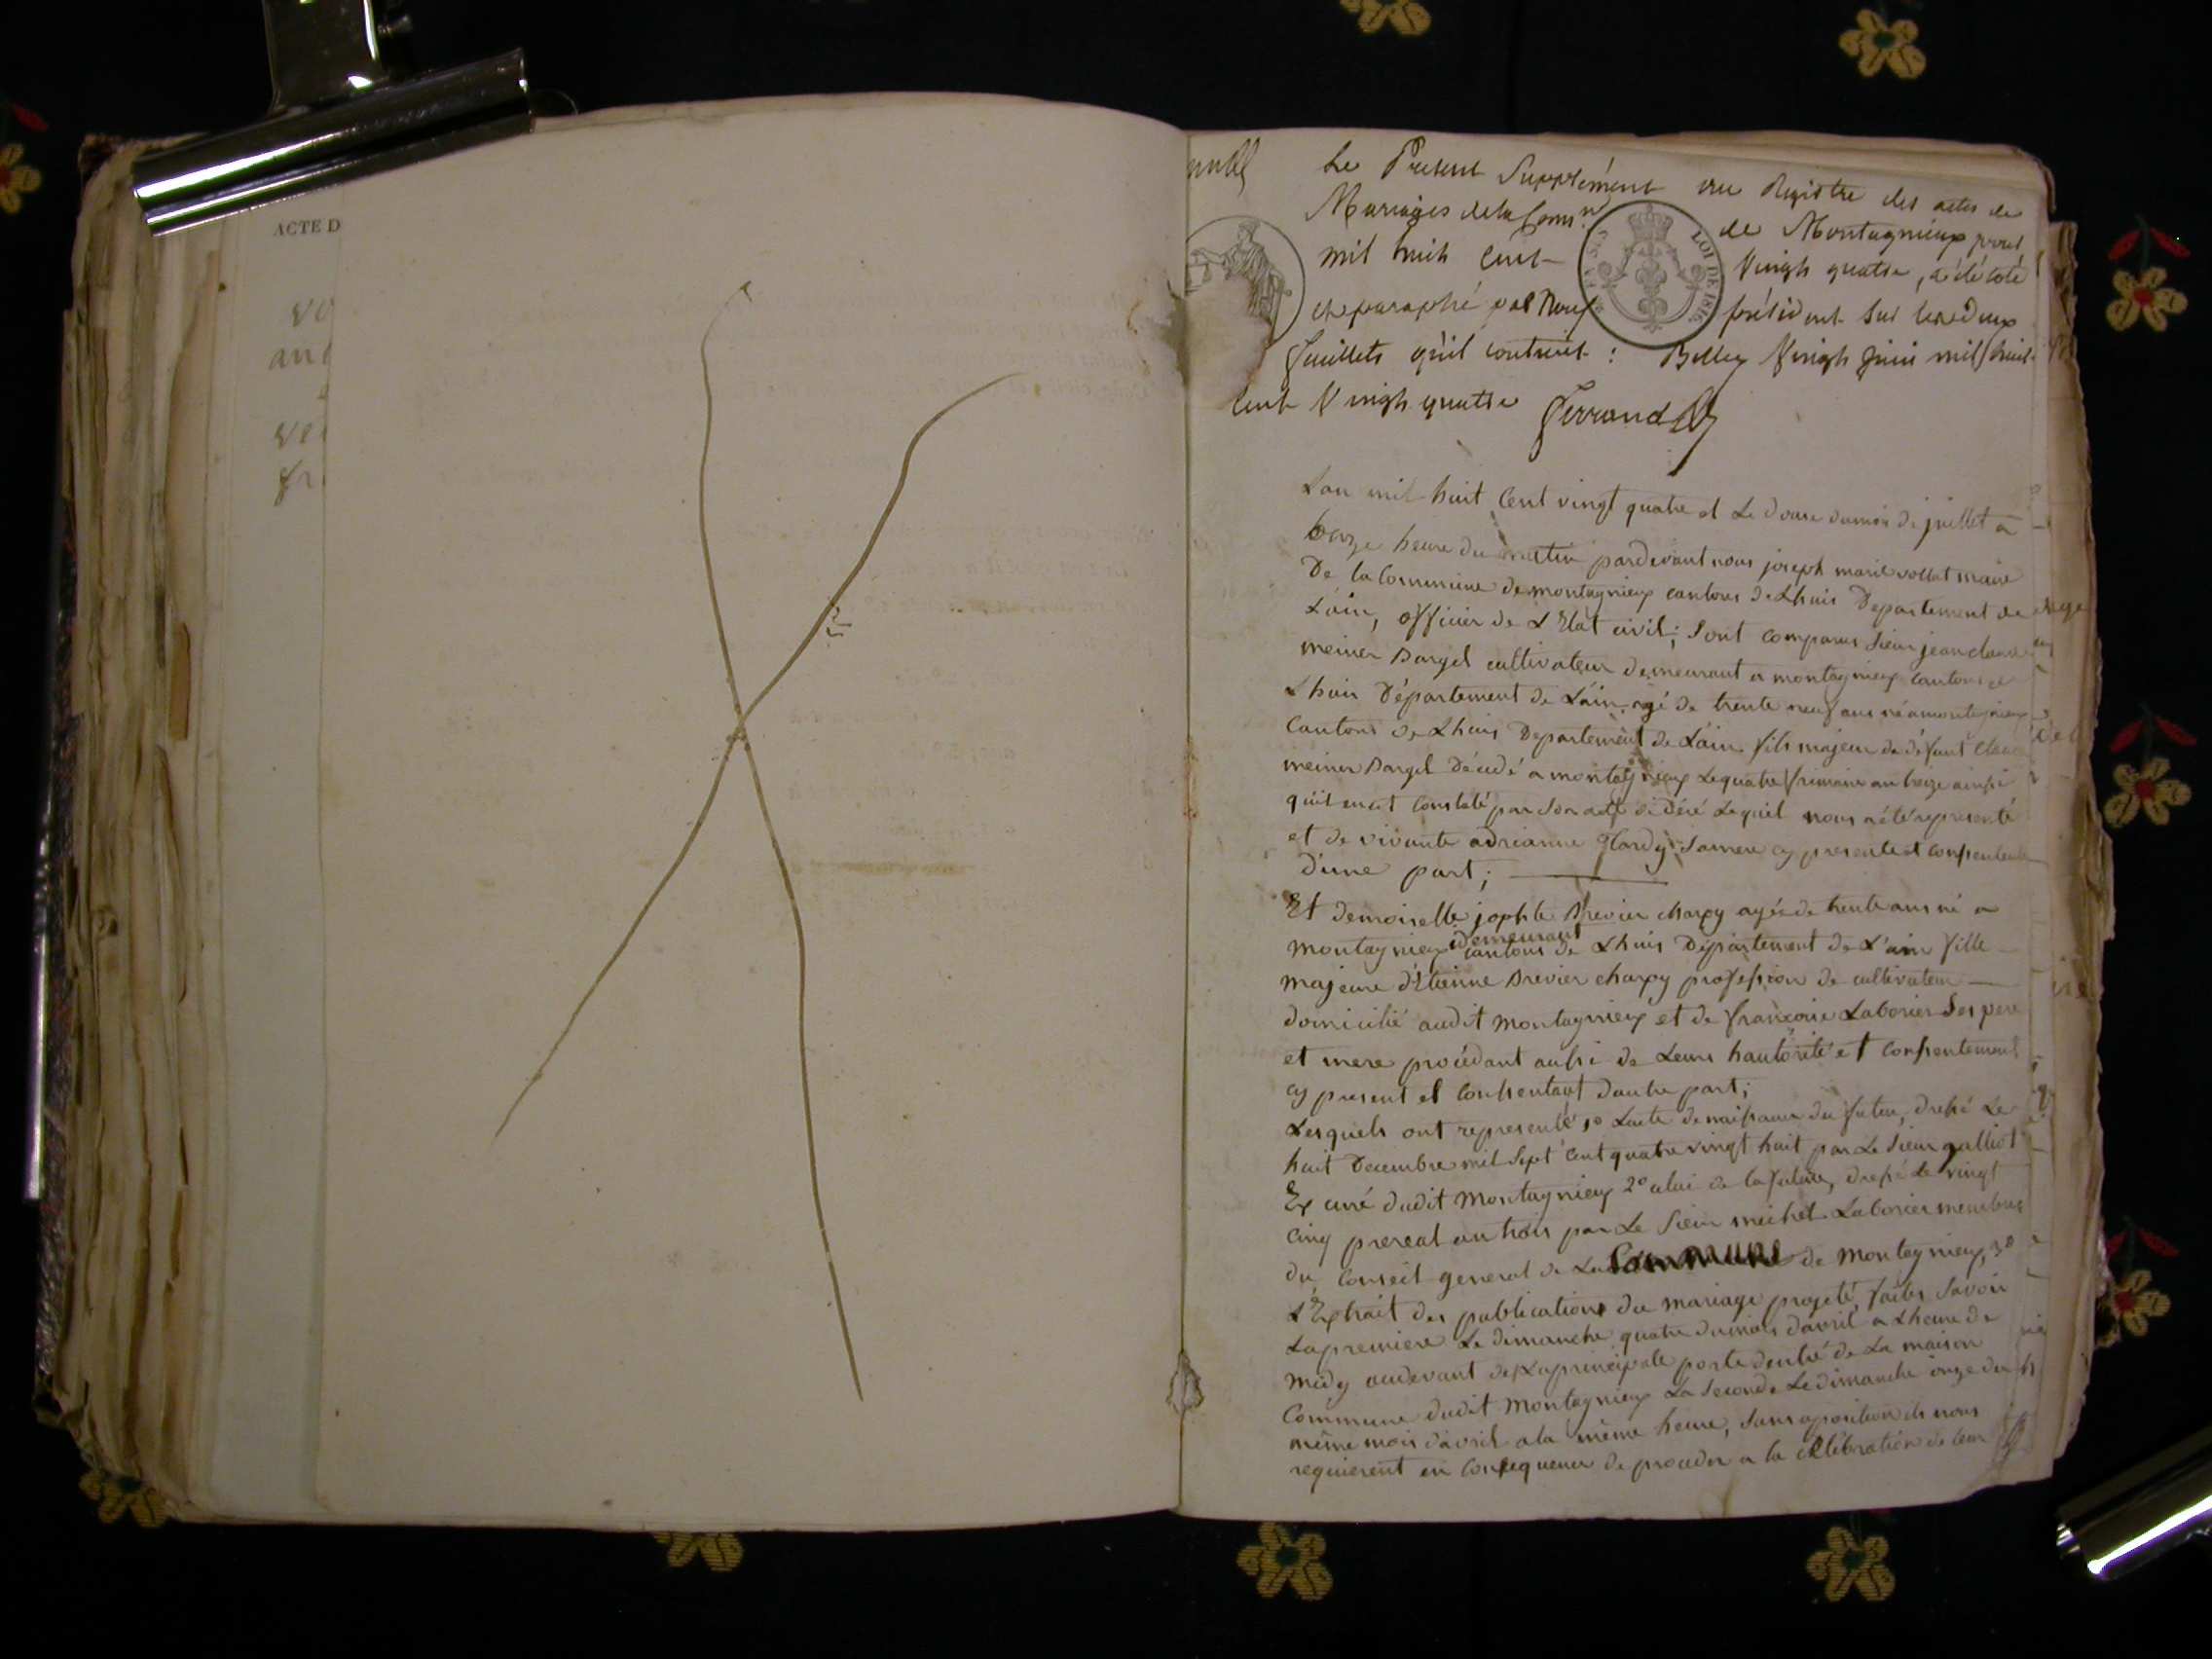 ACTE D
Le Present Supplément au Registre des actes de
Mariages de la Comne de Montagnieux pour
mil huit Cent Vingt quatre, a été coté
et paraphé par Nous président sur les deux
feuillets qu'il contient : Belley Vingt juin mil huit
Cent Vingt quatre Ferrand
LOI DE 1816
Lan mil huit Cent vingt quatre et Le douze du mois de juillet a
heure du matin pardevant nous joseph marie vollat maire
De la Commune de montagnieux cantons de Lhuis Departement de
L'ain, officier de L'Etat civil; Sont comparus Sieur jean claude
meiner Dargel cultivateur demeurant a montagnieux Cantons de
Lhuis Département de L'ain agé de trente neuf ans né a montagnieux
Cantons de Lhuis Departement de L'ain fils majeur de défunt Claude
meiner Dargel Décédé a montagnieux Le quatre frimaire an treize ainsi
qu'il en est Constaté par Son acte de décé Lequel nous a été representé
et de vivante adrianne Sa mere cy presente et Consentente
D'une part;
Et demoiselle jophte Brevier charpy agée de trente ans né a
montagnieux demeurant cantons de Lhuis Département de L'ain fille
majeure d'Etienne Brevier charpy profession de cultivateur
domicilié audit montagnieux et de francoise Laborier Ses pere
et mere procédant aussi de Leurs hautorité et Consentement
cy present et Consentant d'autre part;
Lesquels ont representé 1o Lacte de naissance du futur, dressé Le
huit Decembre mil Sept Cent quatre vingt huit par Le Sieur galliot
Ex curé dudit Montagnieux 2o celui de la future, dressé Le vingt
Cinq prereal an trois par Le Sieur michel Laborier membre
du Conseil general de La Commune de montagnieux, 3o
L'Extrait des publications du mariage projeté, faites Savoir
La premiere Le dimanche quatre du mois d'avril a Lheure de
midy audevant de La principale porte d'entré de La maison
Commune dudit Montagnieux La Seconde Le dimanche onze du
même mois d'avril a la même heure, Sans oposition ils nous
requierent en Consequence de proceder a la célébration de leur